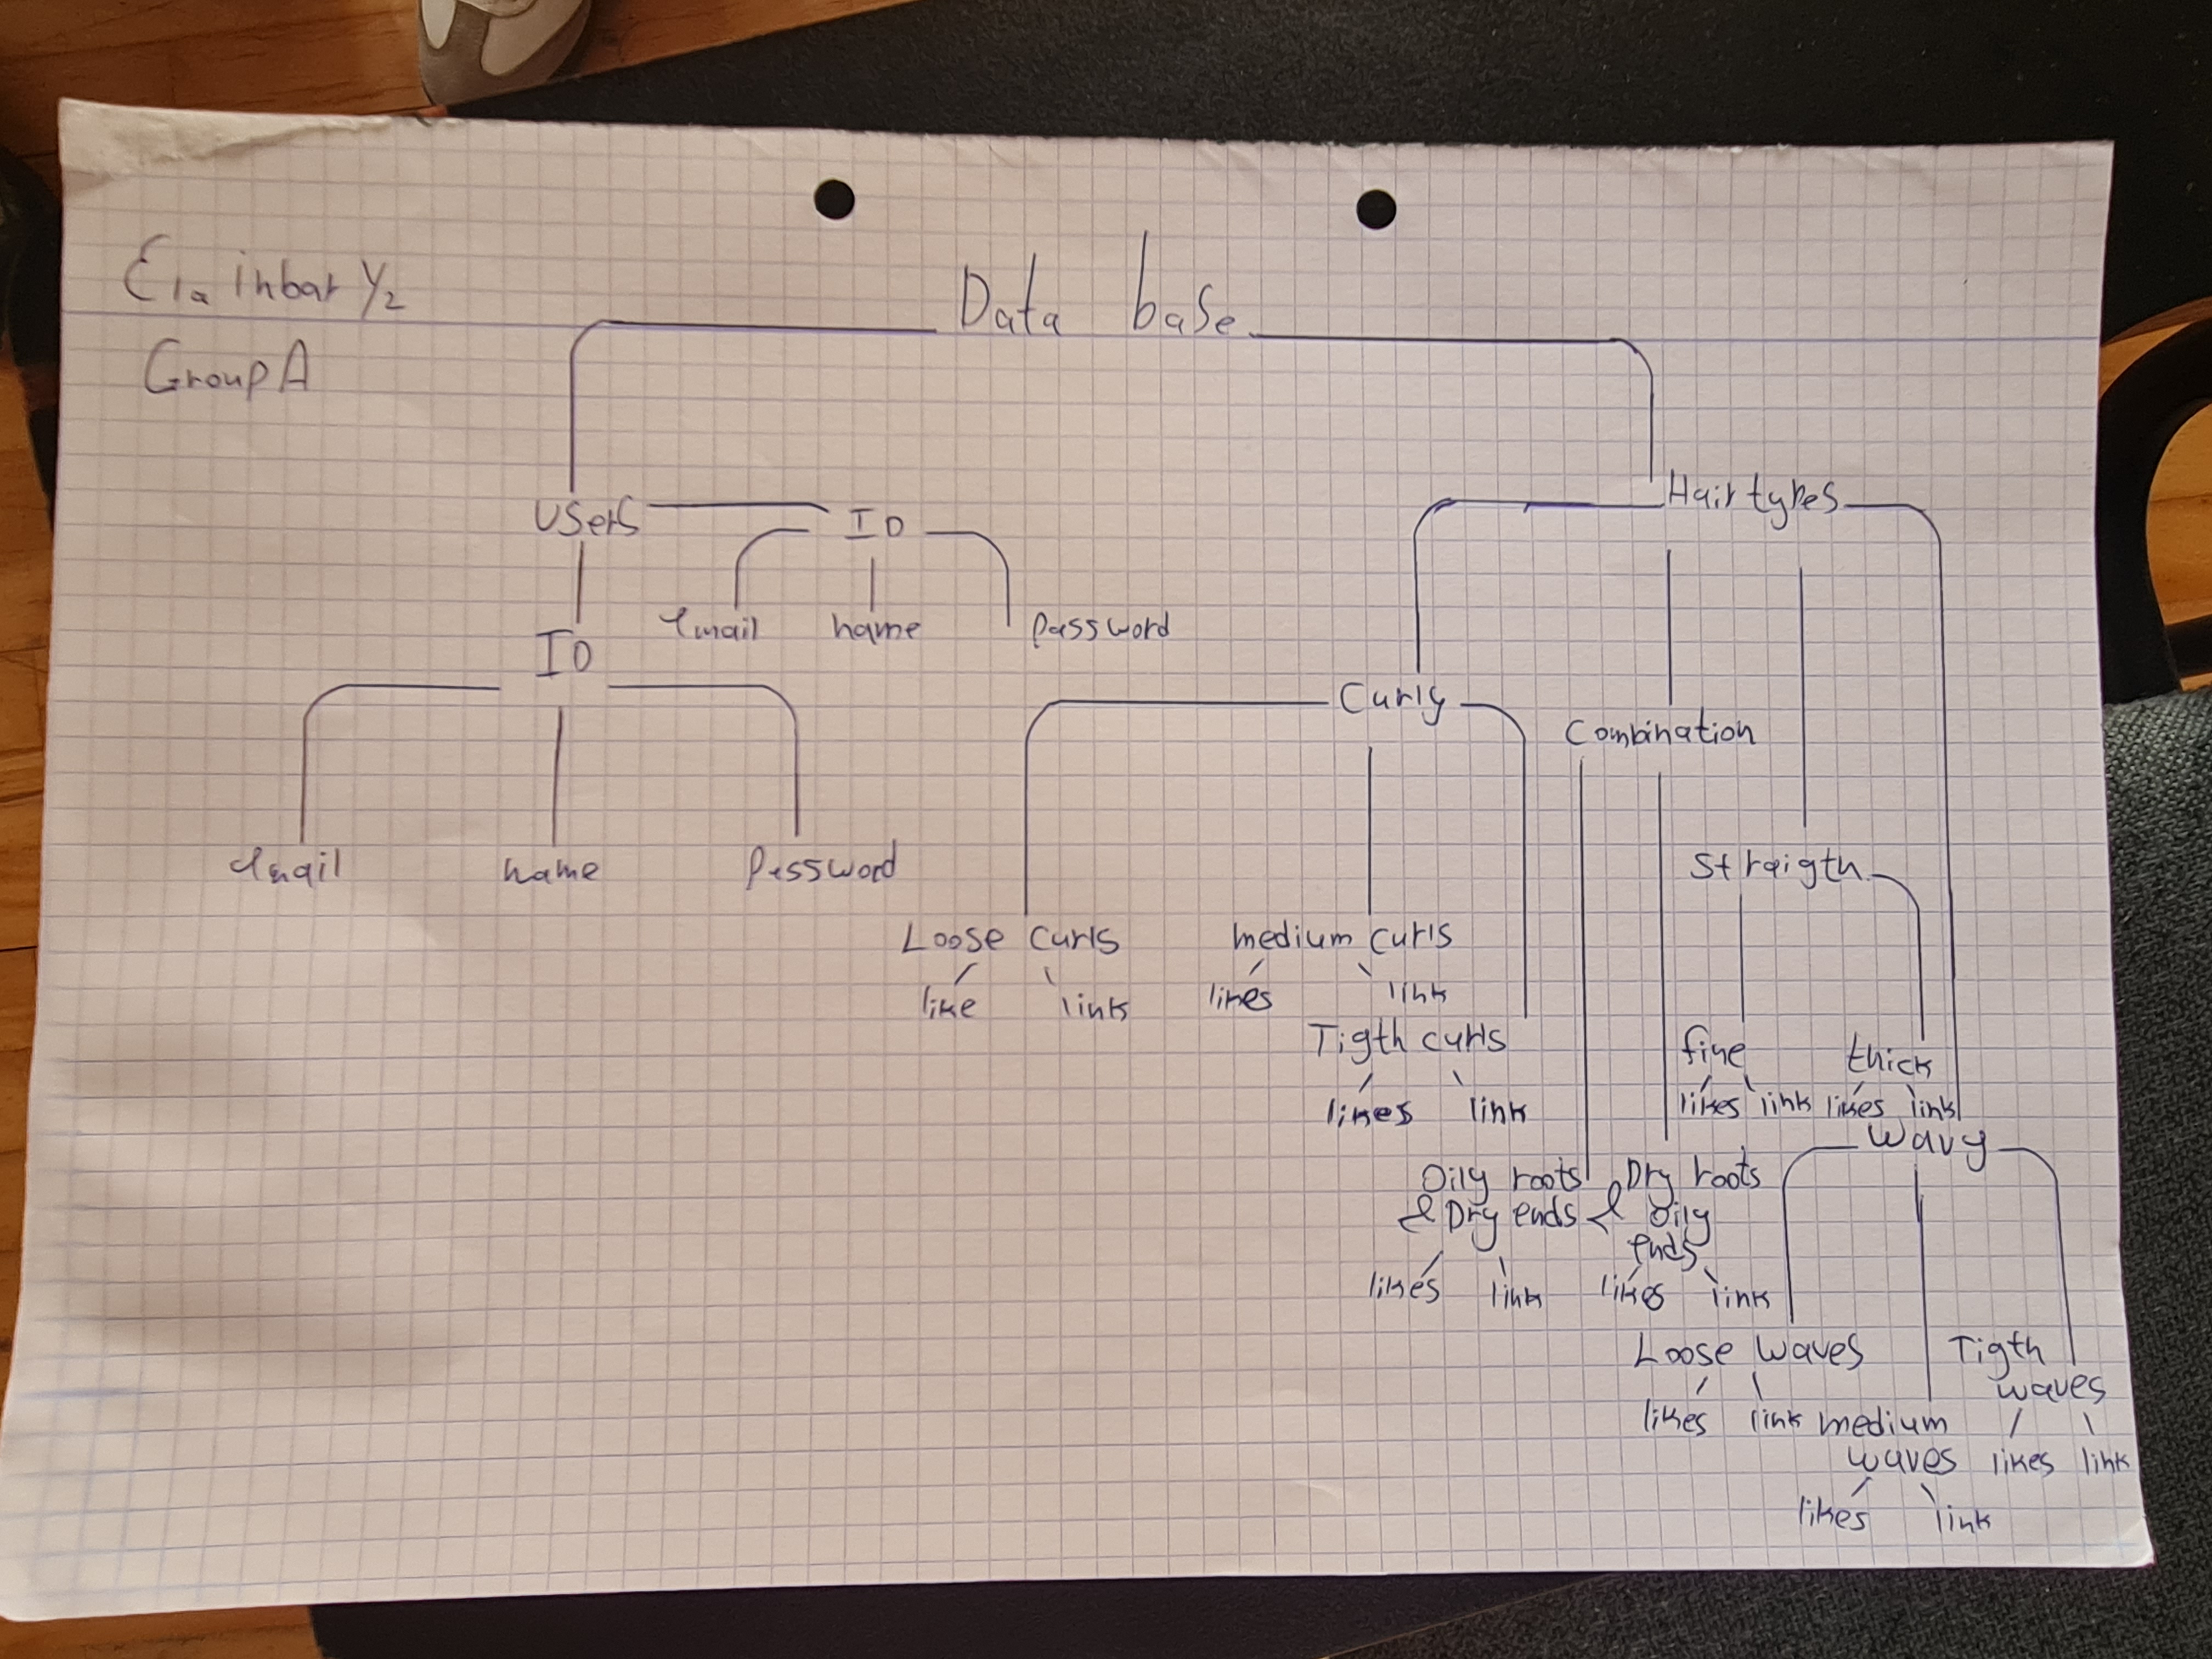 Ela Inbar Y2
Group A
Data base
users
ID
email
name
password
ID
email
name
pessword
Hair types
Curly
Loose curls
like
link
medium curls
likes
link
Tigth curls
likes
link
Combination
Oily roots
& Dry ends
likes
link
Dry roots
& oily
ends
likes
link
Straigth
fine
likes
link
thick
likes
link
Wavy
Loose waves
likes
link
medium
waves
likes
link
Tigth
waves
likes
link